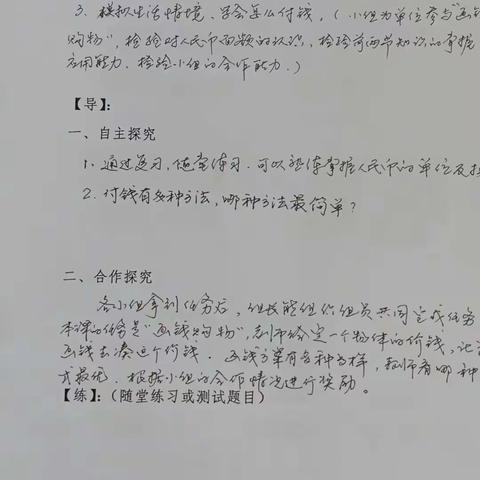 3. 模拟生活情境,学会怎么付钱,(小组为单位参与"画钱
购物",检验对人民币面额的认识,检验前两节知识的掌握
应用能力.检验小组的合作能力.)
【导】:
一、自主探究
1. 通过复习,随堂练习.可以熟练掌握人民币的单位及
2. 付钱有多种方法,哪种方法最简单?
二、合作探究
各小组拿到任务后,组长能组织组员共同完成任务
本课的任务是"画钱购物",教师给定一个物体的价钱,让
画钱去凑这个价钱.画钱方案有各种各样,教师看哪种
式最优.根据小组的合作情况进行奖励。
【练】:(随堂练习或测试题目)